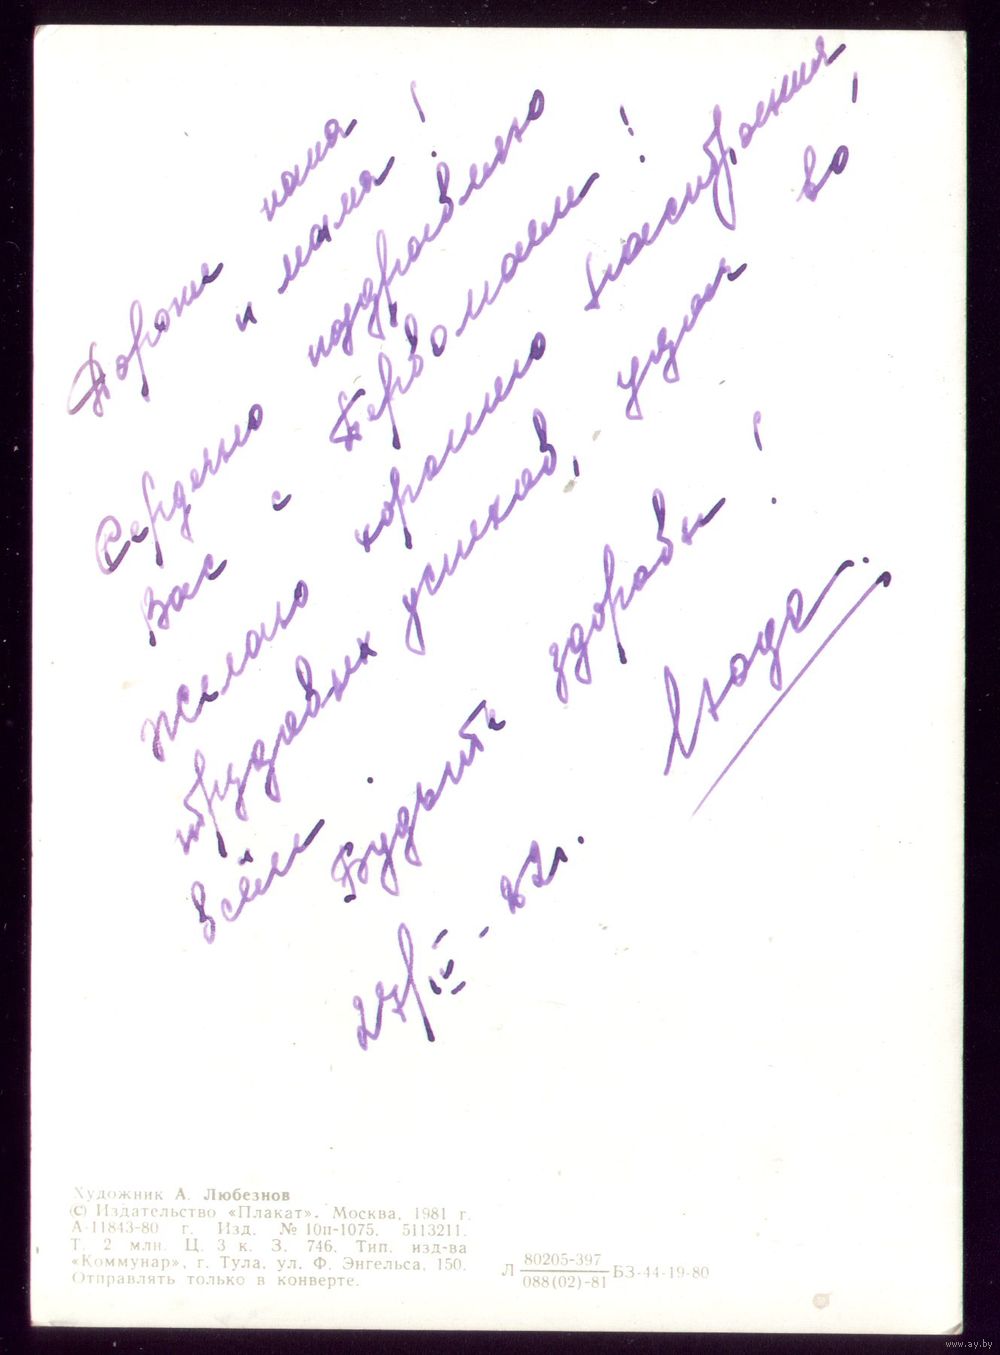 Дорогие папа
и мама!
Сердечно поздравляю
Вас с Первомаем!
желаю хорошего настроения,
трудовых успехов, удачи во
всём!
Будьте здоровы!
Люда.
27/IV-82г.
Художник А. Любезнов
© Издательство «Плакат». Москва, 1981 г.
А-11843-80 г. Изд. № 10п-1075. 5113211.
Т. 2 млн. Ц. 3 к. З. 746. Тип. изд-ва
«Коммунар», г. Тула, ул. Ф. Энгельса, 150.
Отправлять только в конверте.
Л 80205-397 БЗ-44-19-80
088(02)-81
www.ay.by